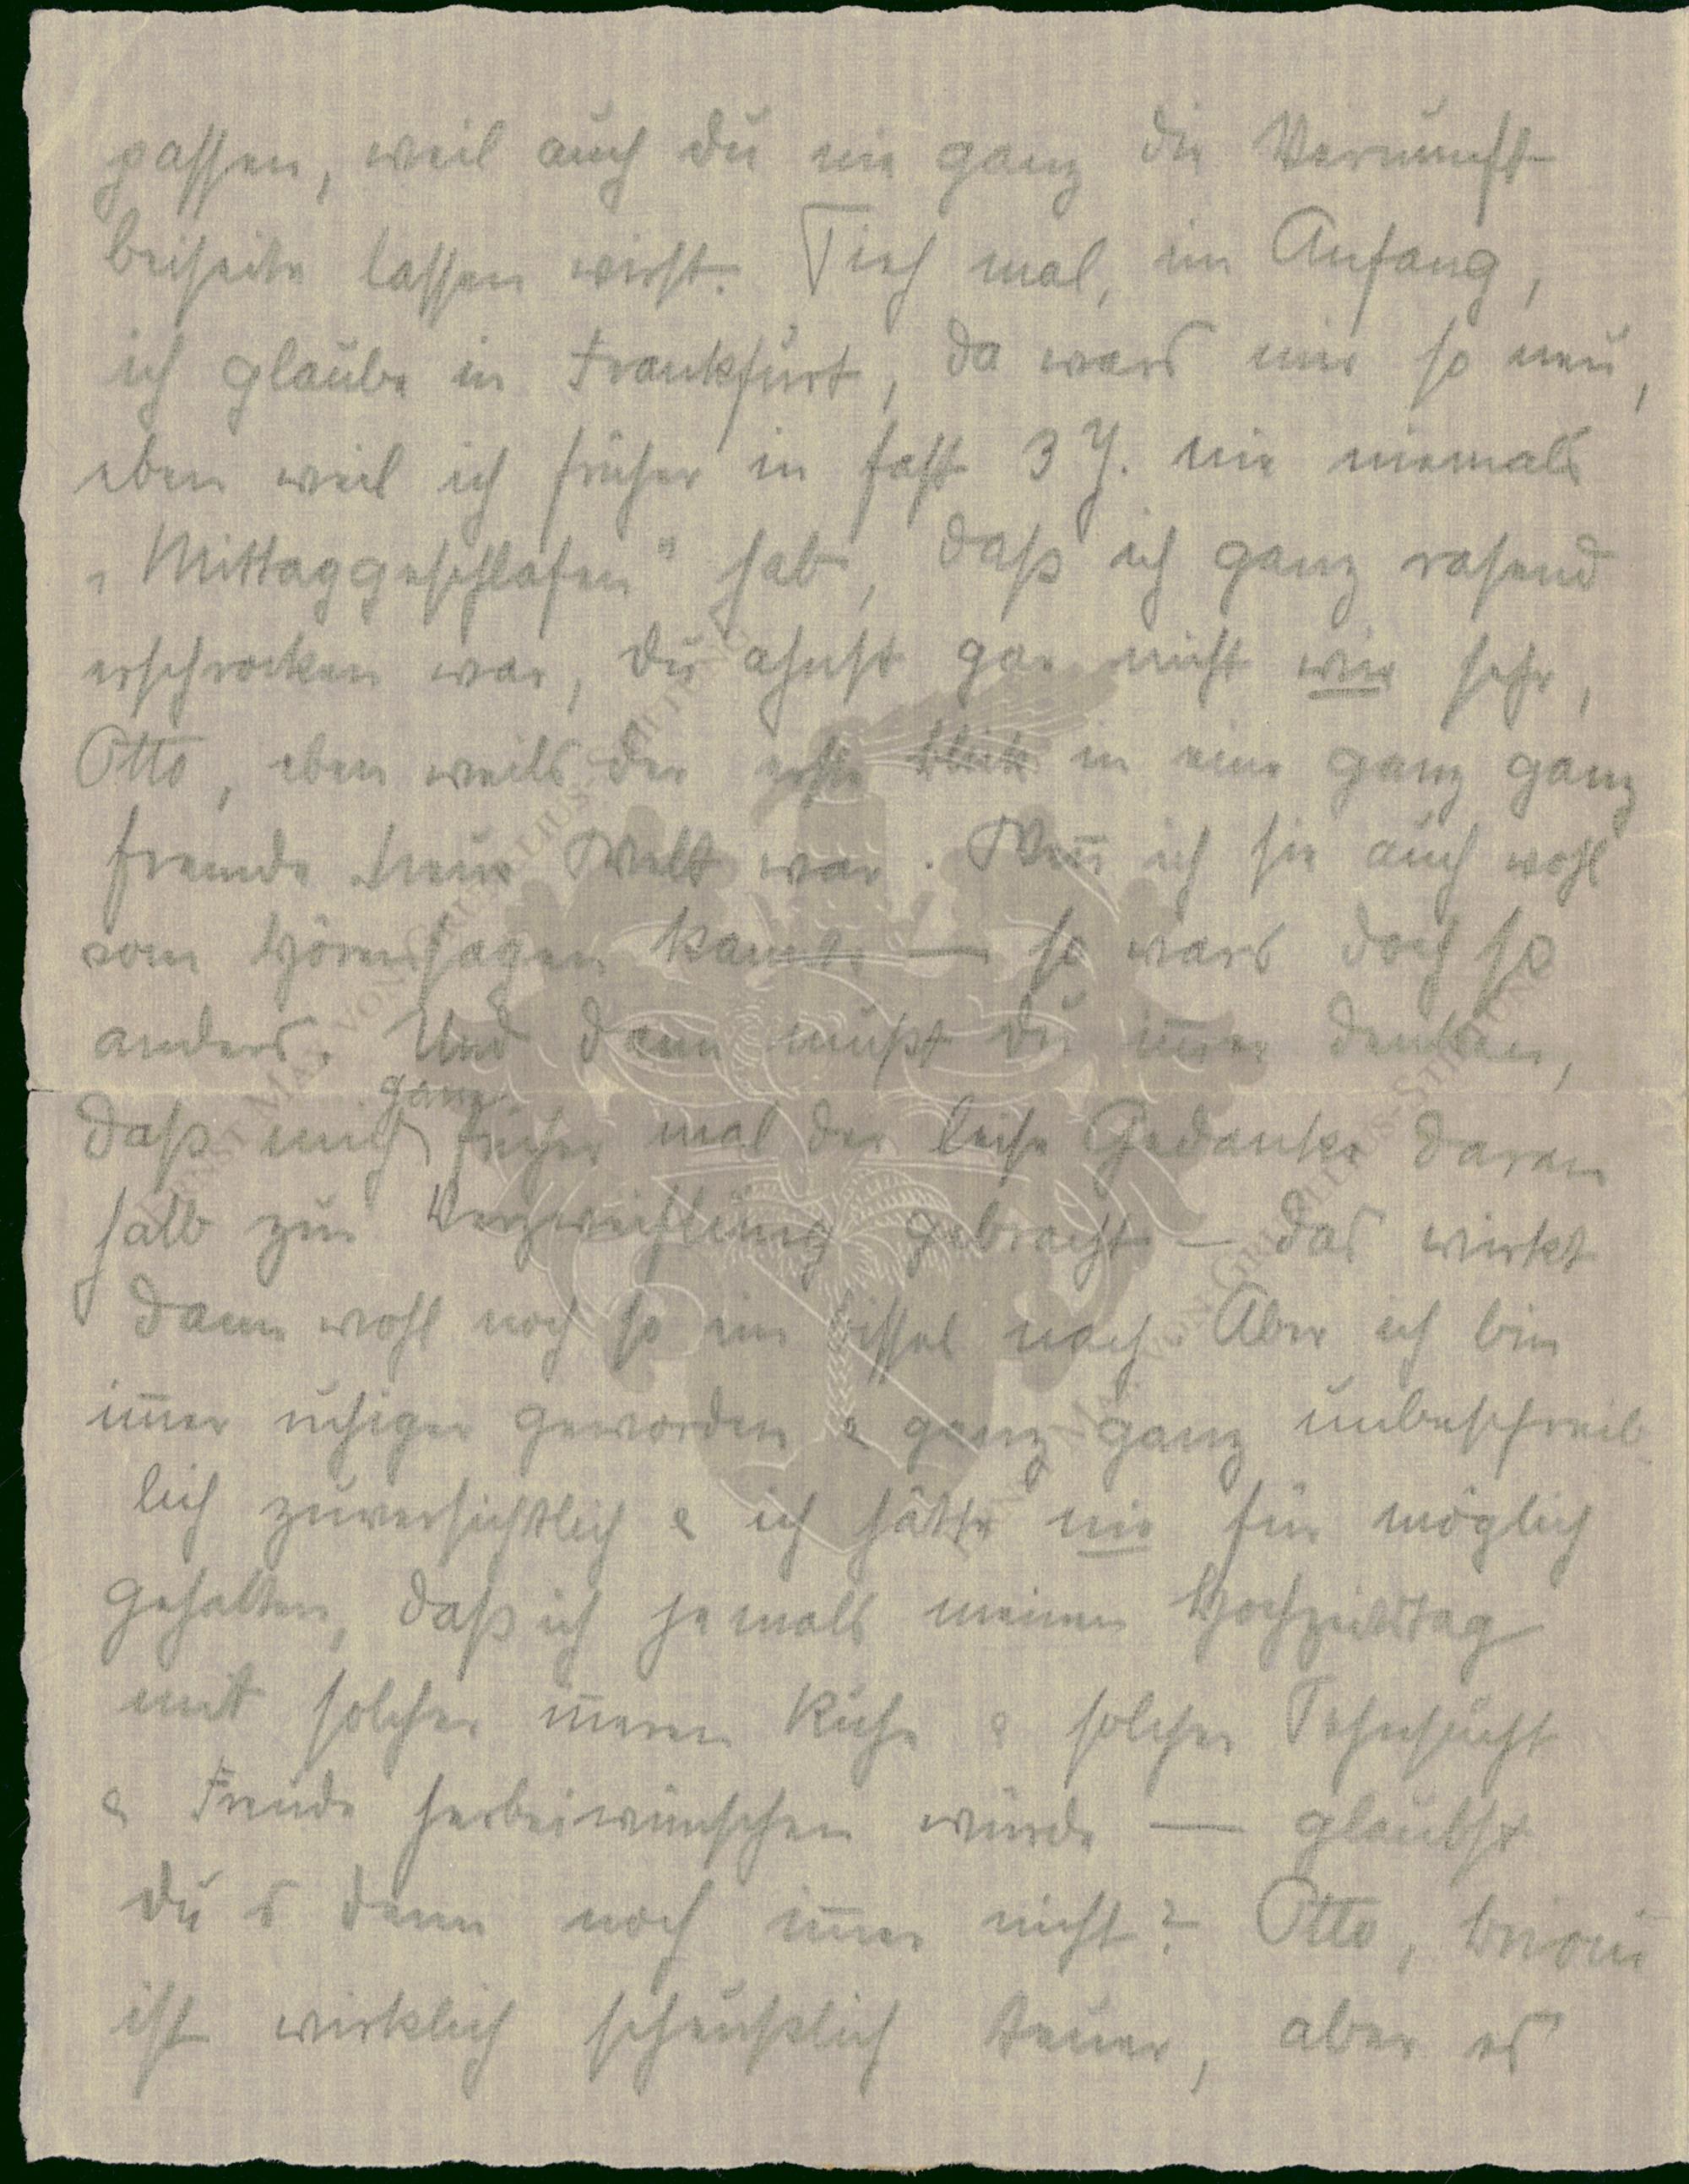 passen, weil auch du nie ganz die Vernunft
beiseite lassen wirst. Sieh mal, im Anfang,
ich glaube in Frankfurt, da wars mir so neu,
eben weil ich früher in fast 3 J. nie niemals
„Mittaggeschlafen" hab, daß ich ganz rasend
erschrocken war, du ahnst gar nicht wie sehr,
Otto, eben weils der erste Blick in eine ganz ganz
fremde neue Welt war. Wen̅ ich sie auch wohl
vom Hörensagen kannte — so wars doch so
anders. Und dann mußt du im̅er denken,
daß mich ganz früher mal der leise Gedanke daran
halb zur Verzweiflung gebracht — das wirkt
dann wohl noch so ein bissel nach. Aber ich bin
im̅er ruhiger geworden & ganz ganz unbeschreib-
lich zuversichtlich & ich hätte nie für möglich
gehalten, daß ich jemals meinen Hochzeitstag
mit solcher in̅eren Ruhe & solcher Sehnsucht
& Freude herbeiwünschen würde — glaubst
du s denn noch im̅er nicht? Otto, Brioni
ist wirklich scheußlich teuer, aber es